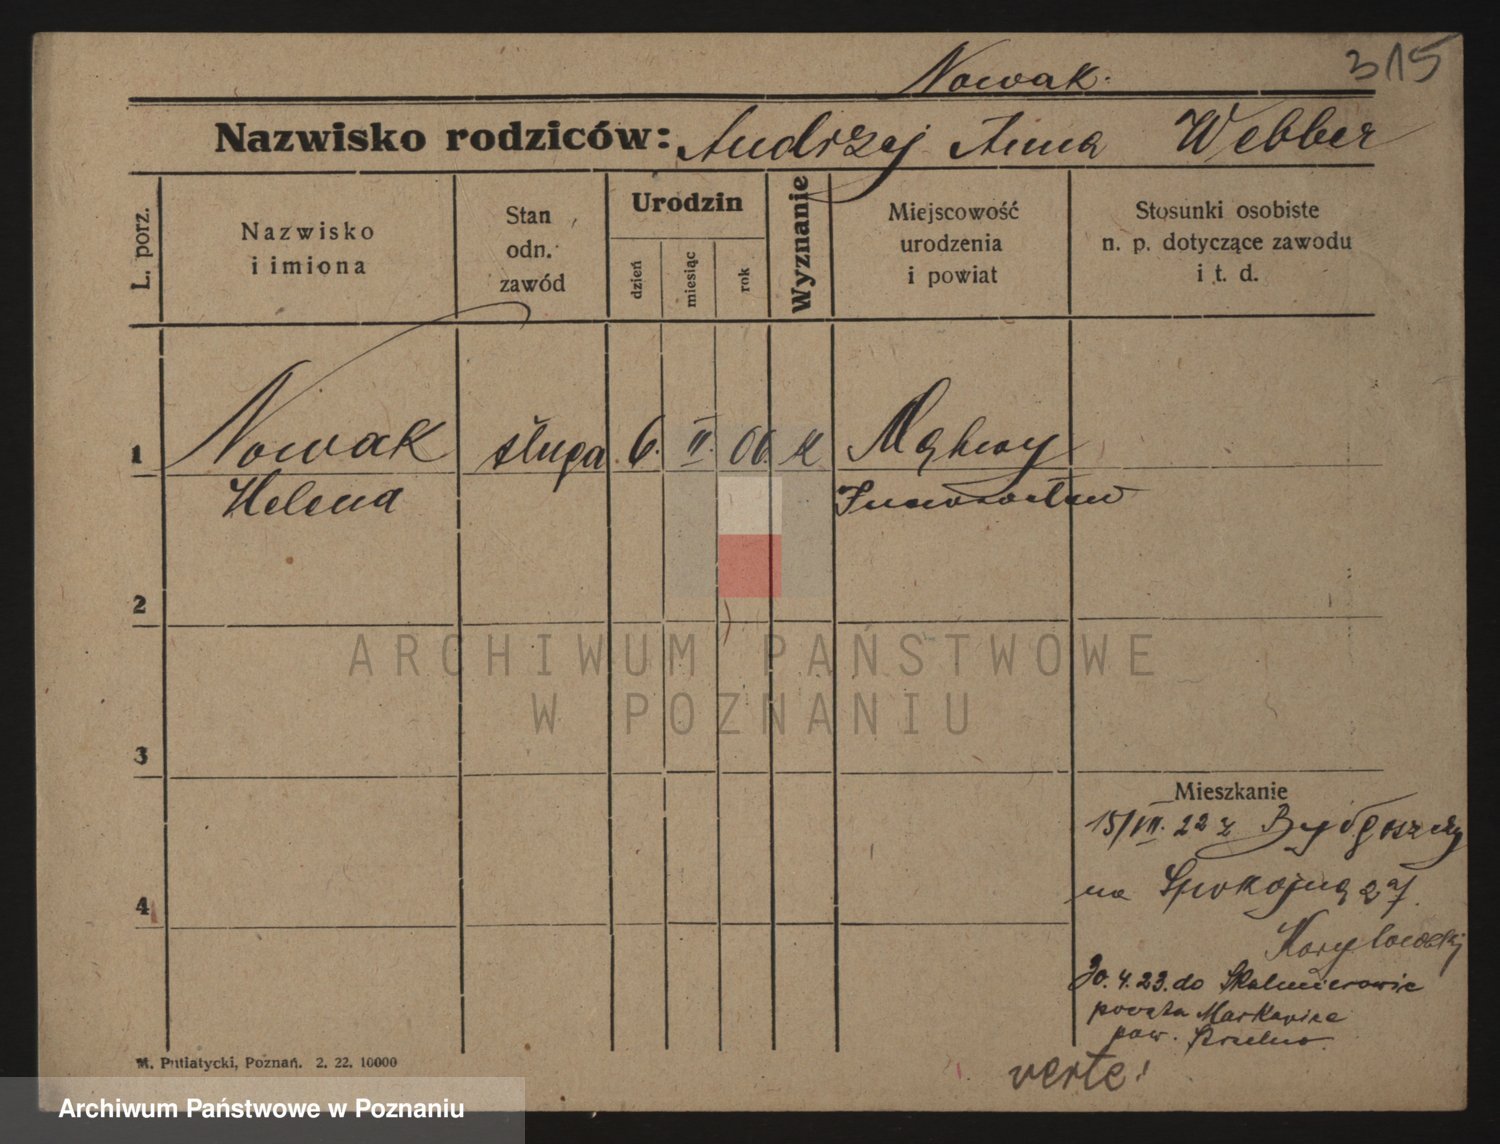 Nowak.
315
Nazwisko rodziców: Andrzej Anna Webber
L. porz.
Nazwisko
i imiona
Stan
odn.
zawód
Urodzin
dzień
miesiąc
rok
Wyznanie
Miejscowość
urodzenia
i powiat
Stosunki osobiste
n. p. dotyczące zawodu
i t. d.
1
Nowak
Helena
sługa
6.
II.
06.
K
Mątwy
Inowrocław
2
3
4
ARCHIWUM PAŃSTWOWE
W POZNANIU
Mieszkanie
15/VII. 22 z Bydgoszczy
na Spokojną 27.
30.4.23. do
poczta Markowice
pow. Strzelno.
verte!
M. Putiatycki, Poznań. 2. 22. 10000
Archiwum Państwowe w Poznaniu